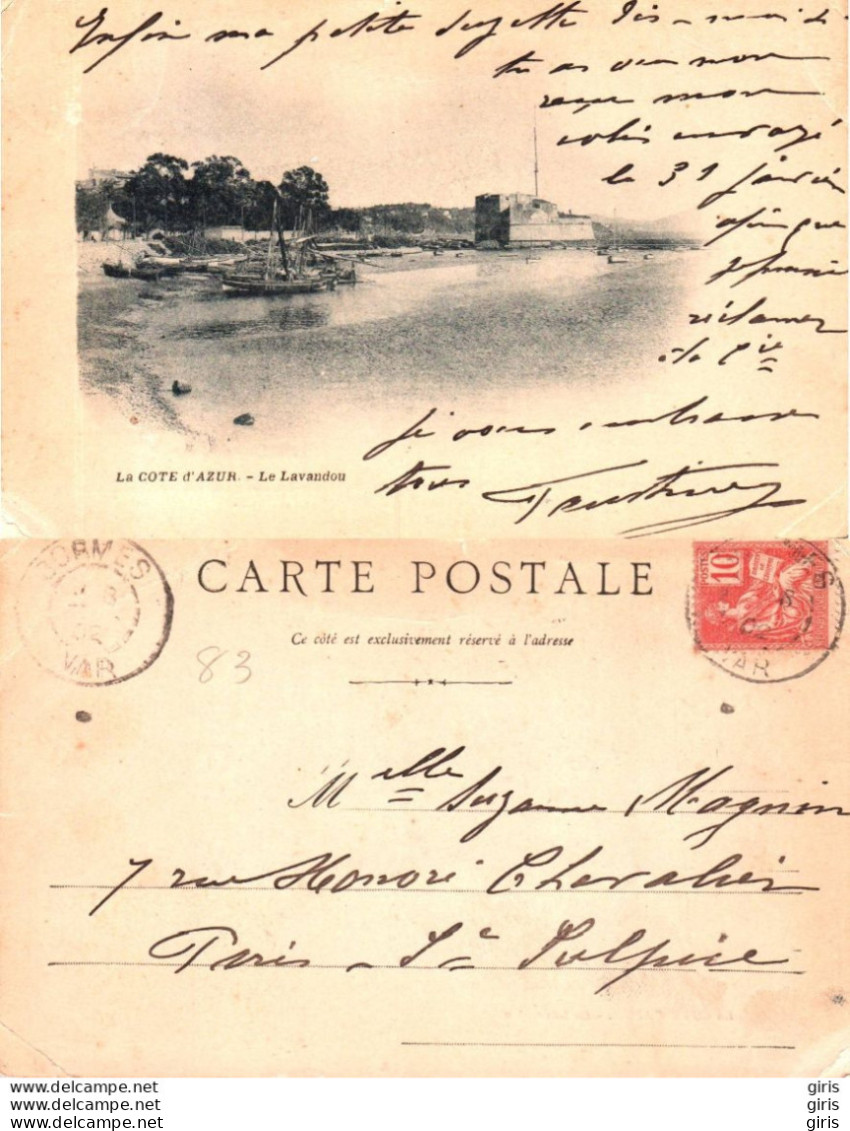 Enfin ma petite Suzette dis-moi si
tu as ou non
reçu mon
colis envoyé
le 31 janvier
afin que
je puisse
réclamer
à la Cie
je vous embrasse
tous
La COTE d'AZUR. - Le Lavandou
BORMES
VAR
CARTE POSTALE
Ce côté est exclusivement réservé à l'adresse
83
POSTES
10
VAR
Melle Suzanne Magnin
7 rue Honoré Chevalier
Paris - St Sulpice
giris
giris
giris